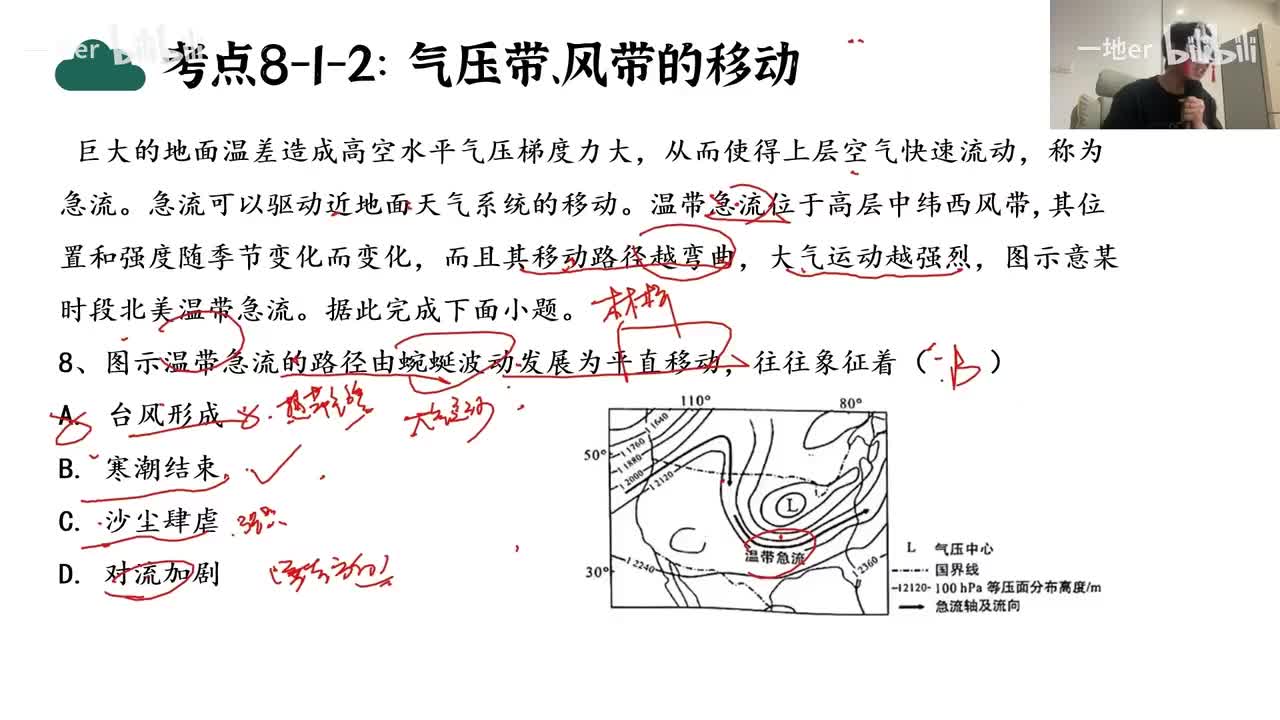 考点8-1-2：气压带、风带的移动
一地er bilibili
巨大的地面温差造成高空水平气压梯度力大，从而使得上层空气快速流动，称为
急流。急流可以驱动近地面天气系统的移动。温带急流位于高层中纬西风带，其位
置和强度随季节变化而变化，而且其移动路径越弯曲，大气运动越强烈，图示意某
时段北美温带急流。据此完成下面小题。
材料
8、图示温带急流的路径由蜿蜒波动发展为平直移动，往往象征着（ B ）
A. 台风形成
B. 寒潮结束
C. 沙尘肆虐
D. 对流加剧
110° 80°
50°
30°
11640
11760
11880
12000
12120
12240
12360
L
温带急流
L 气压中心
国界线
-12120- 100 hPa 等压面分布高度/m
急流轴及流向